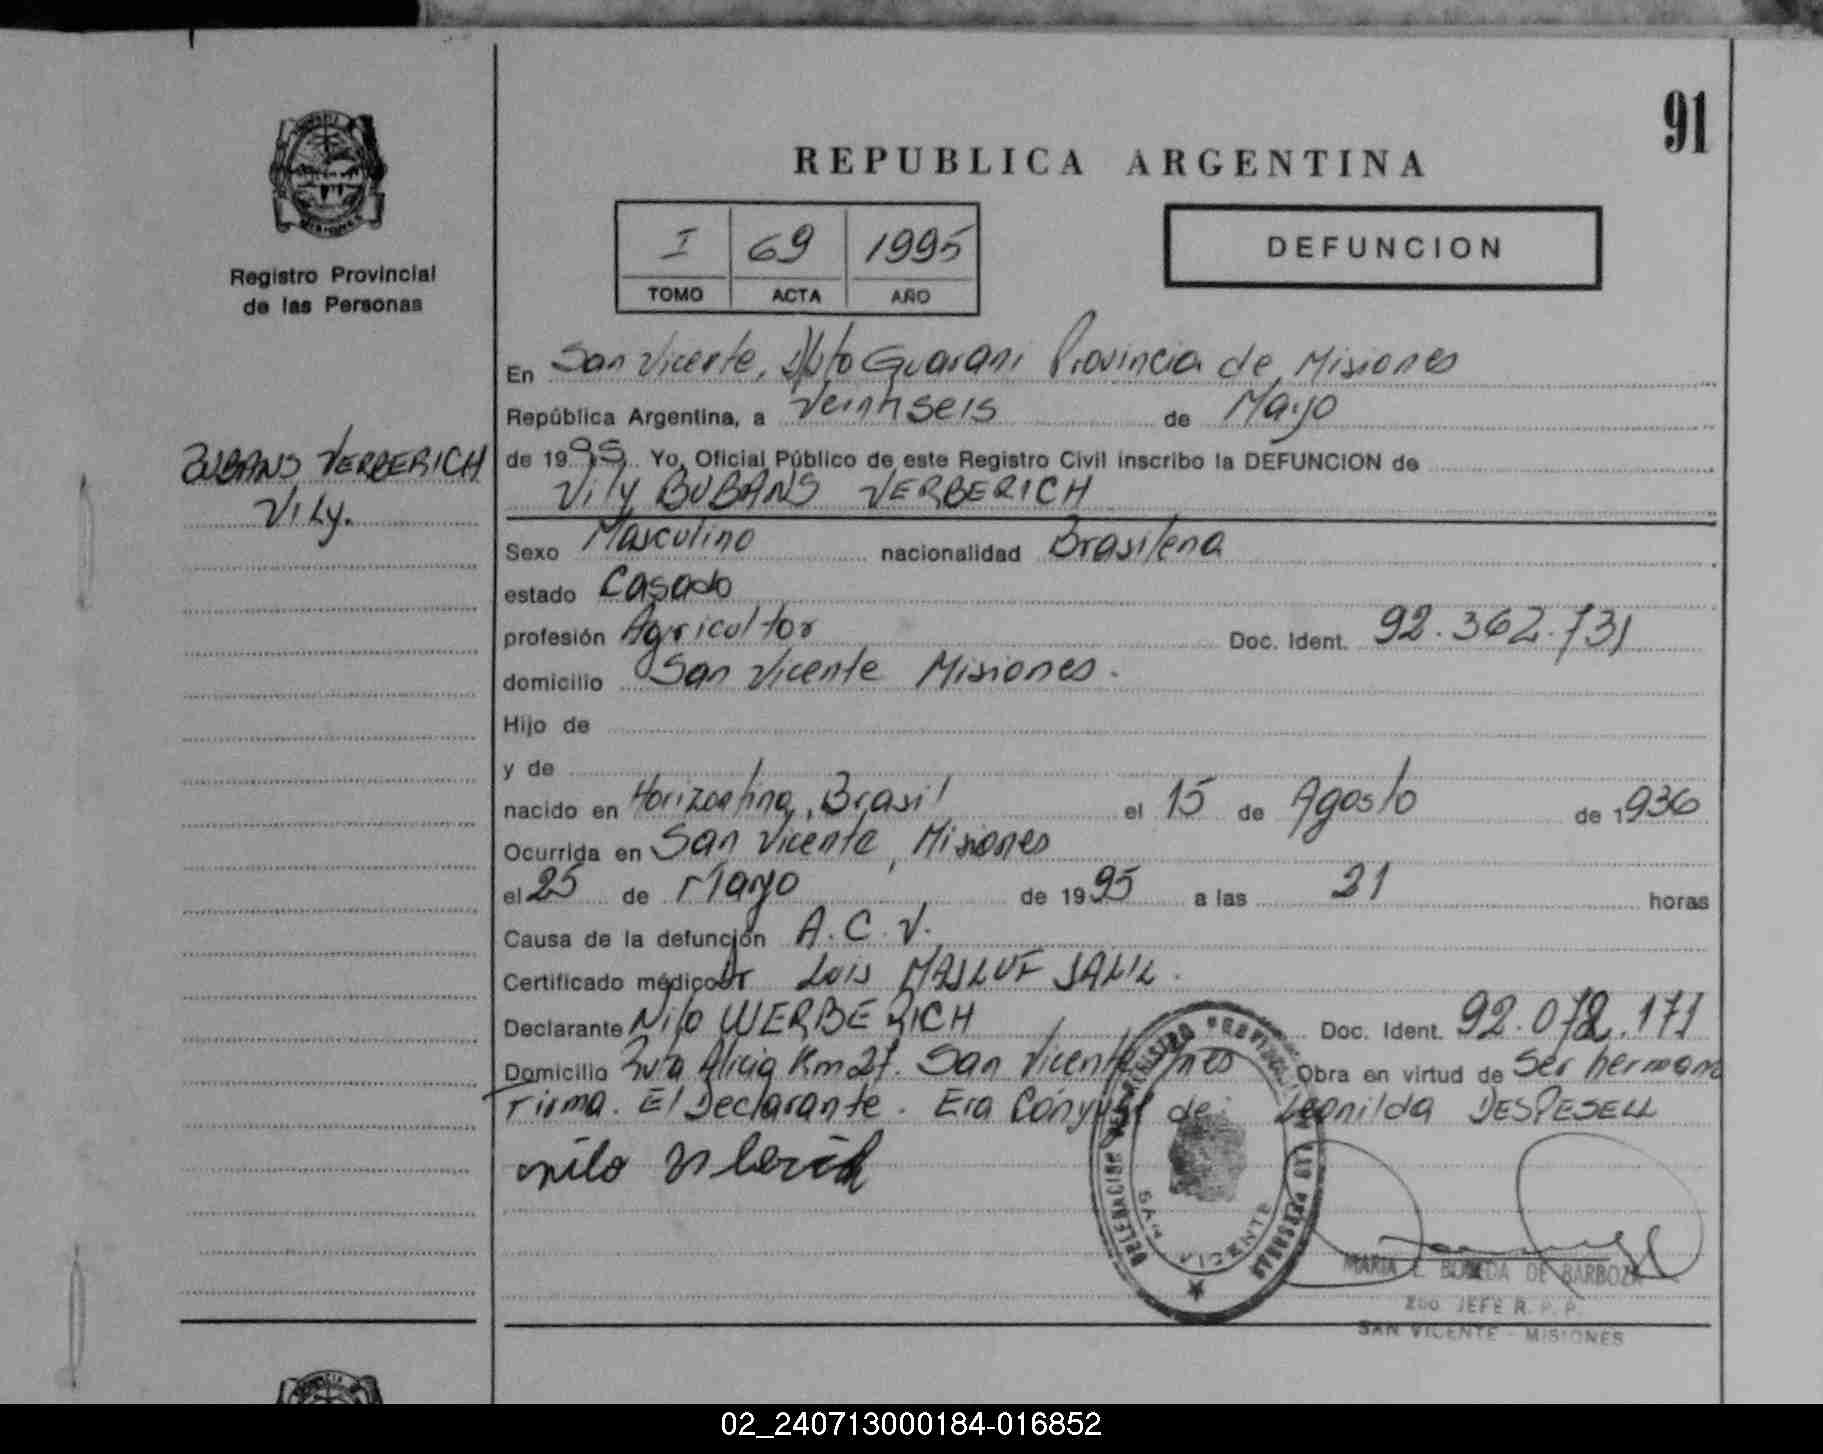 91
REPUBLICA ARGENTINA
I 69 1995
TOMO ACTA AÑO
DEFUNCION
Registro Provincial
de las Personas
BUBANS VERBERICH
Vily.
En San Vicente, Dpto Guarani Provincia de Misiones
República Argentina, a Veintiseis de Mayo
de 1995 Yo, Oficial Público de este Registro Civil inscribo la DEFUNCION de
Vily BUBANS VERBERICH
Sexo Masculino nacionalidad Brasilena
estado Casado
profesión Agricultor Doc. Ident. 92.362.731
domicilio San Vicente Misiones.
Hijo de
y de
nacido en Horizontina, Brasil el 15 de Agosto de 1936
Ocurrida en San Vicente, Misiones
el 25 de Mayo de 1995 a las 21 horas
Causa de la defunción A.C.V.
Certificado médico Dr Luis MASLUF JALIL.
Declarante Nilo WERBERICH Doc. Ident. 92.072.171
Domicilio Ruta Alicia Km 27. San Vicente Mnes Obra en virtud de Ser hermano
Firma. El Declarante. Era Cónyuge de Leonilda DESPESELL
nilo
DELEGACION DEL REGISTRO PROVINCIAL DE LAS PERSONAS
SAN VICENTE
MARIA E. DE BARBOZA
2do. JEFE R. P. P.
SAN VICENTE - MISIONES
02_240713000184-016852